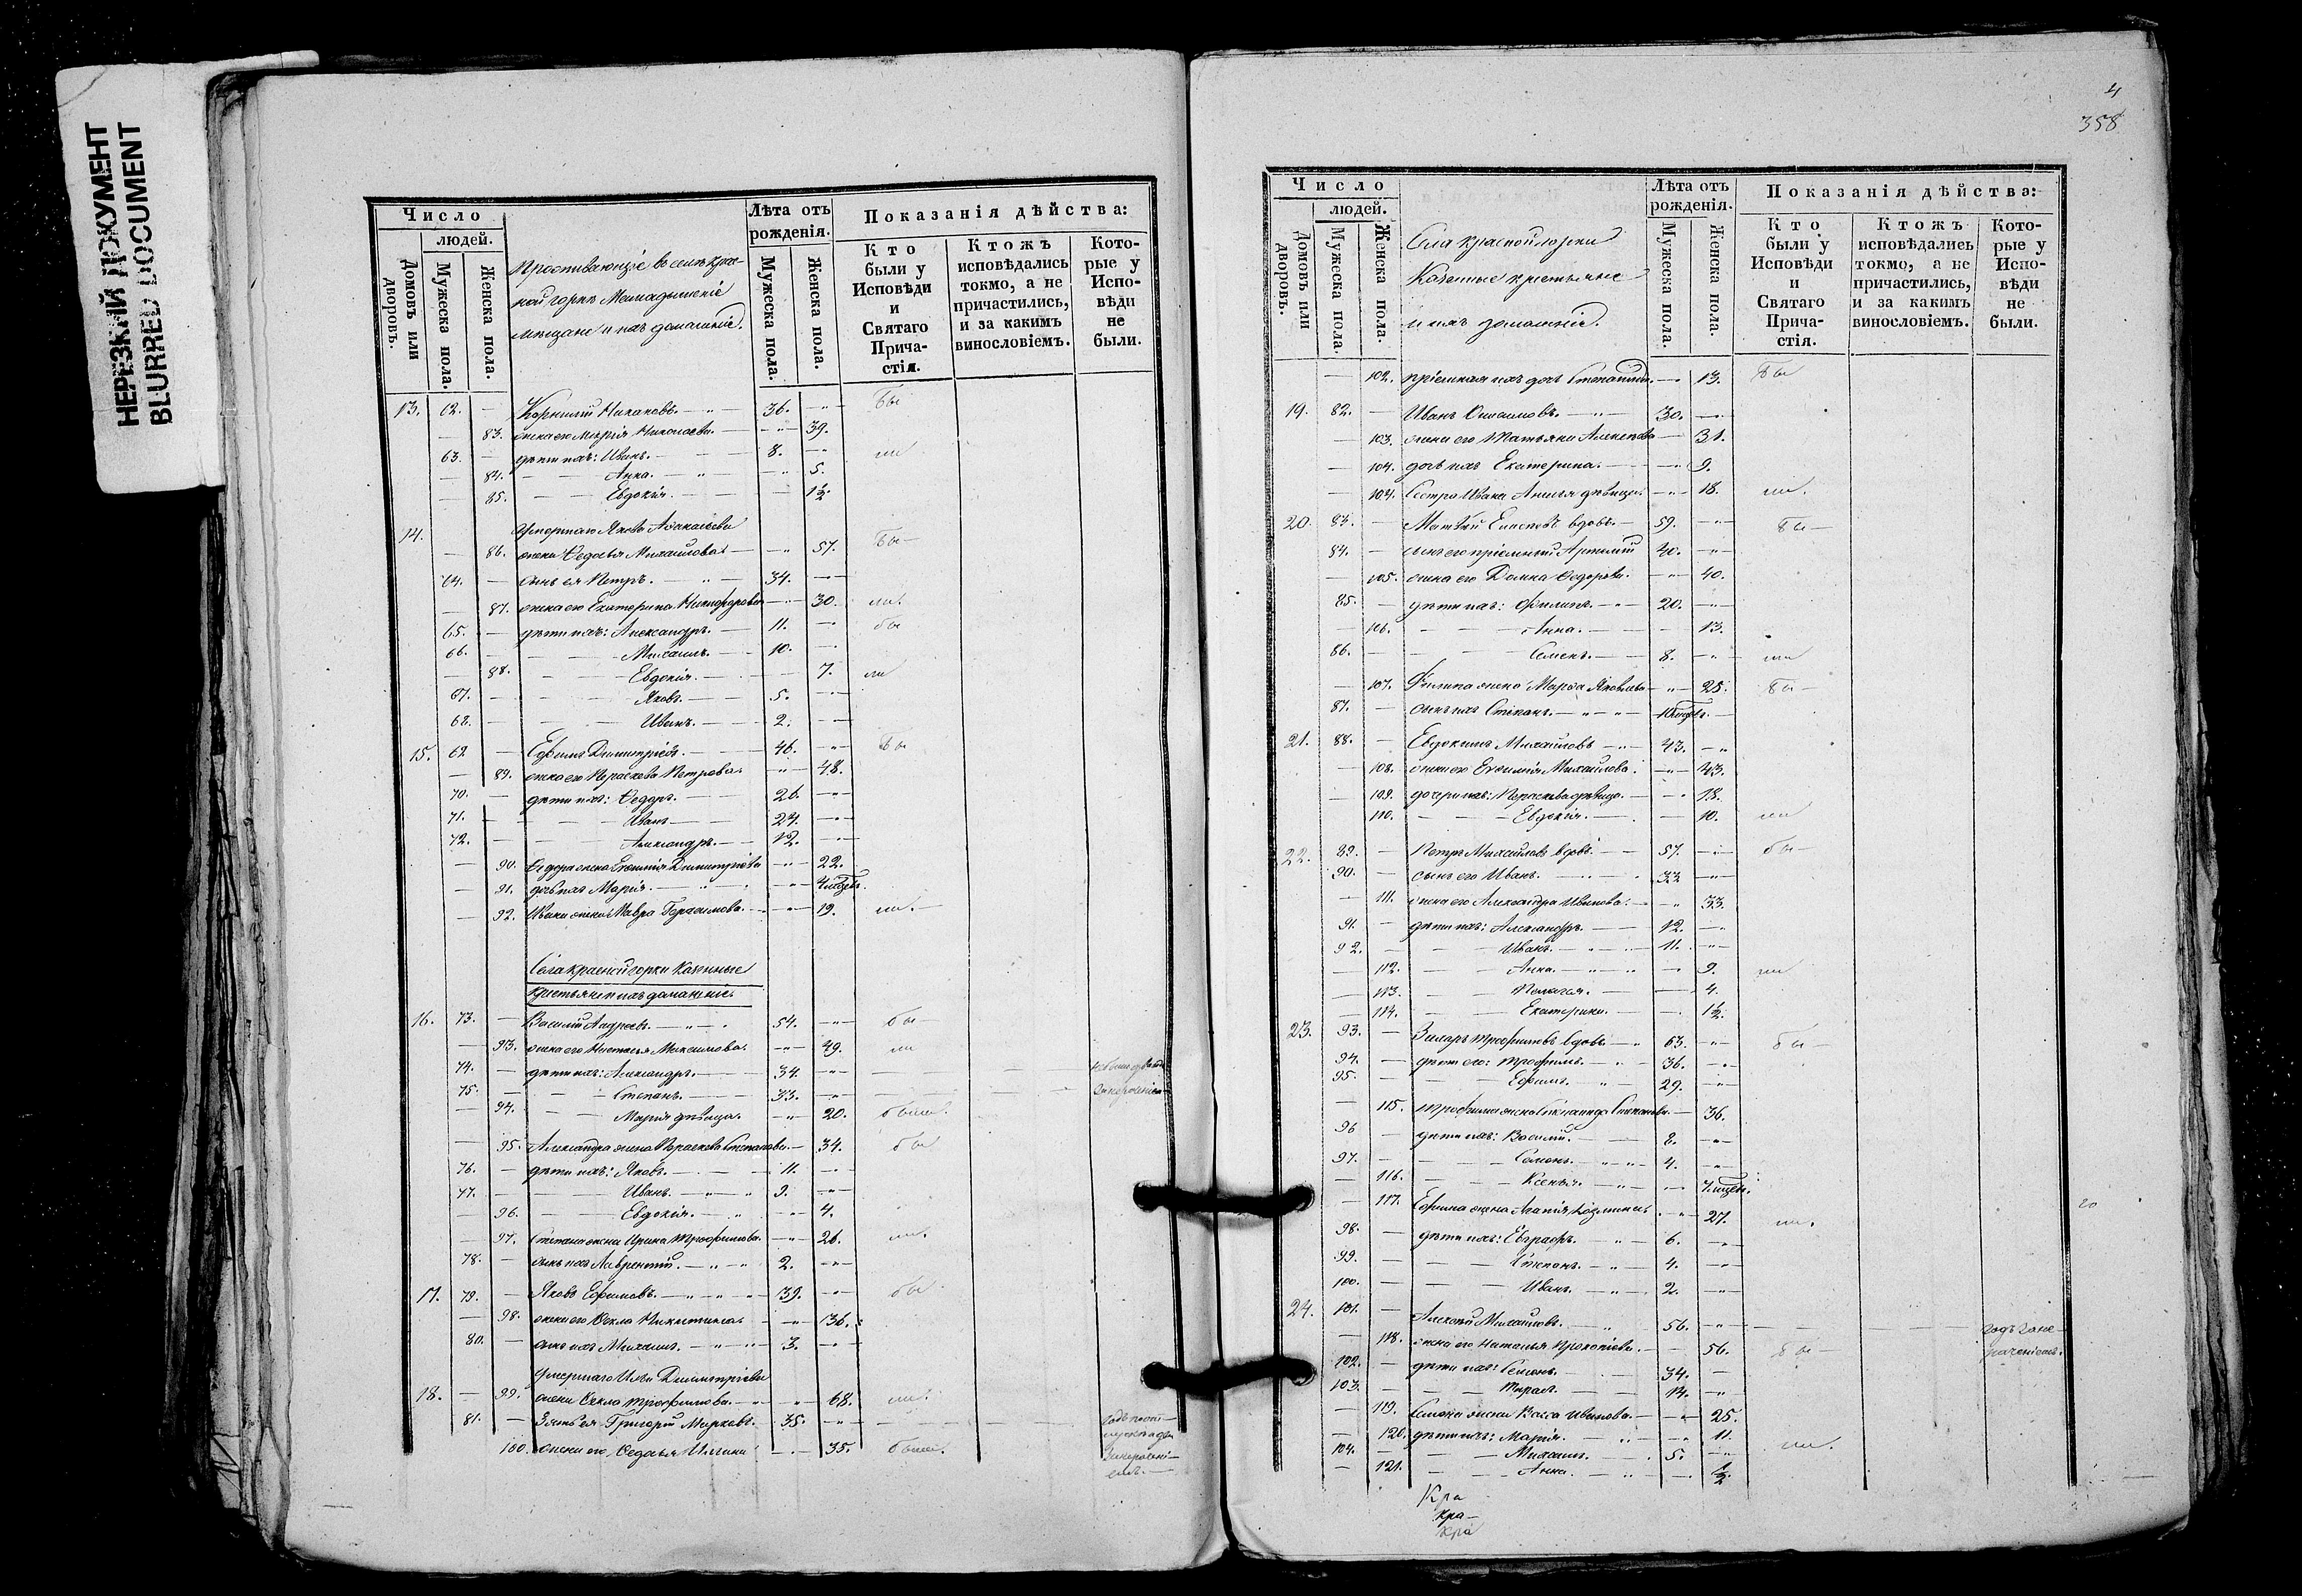 НЕРЕЗКИЙ ДОКУМЕНТ
BLURRED DOCUMENT
Число
людей.
Домовъ или дворовъ.
Мужеска пола.
Женска пола.
Проживающіе въ селѣ Крас-
ной горкѣ
мещане и ихъ домашніе.
Лѣта отъ рожденія.
Мужеска пола.
Женска пола.
Показанія дѣйства:
Кто были у Исповѣди и Святаго Прича-стія.
Ктожъ исповѣдались токмо, а не причастились, и за какимъ винословіемъ.
Кото-рые у Испо-вѣди не были.
13. 62. — Корнилій — 36. — бы
— 83. жена его Марія Николаева — 39.
63. — дѣти ихъ: Иванъ. — 8. — ли
— 84. — Анна. — 5.
— 85. — Евдокія. — 1½.
14. Умершаго Якова
— 86. жена Федосья Михайлова. — 57. бы
64. — сынъ ея Петръ. — 34. —
— 87. жена его Екатерина Никифорова — 30. ли.
65. — дѣти ихъ: Александръ. — 11. — бы
66. — Михаилъ. — 10. —
— 88. — Евдокія. — 7. ли
67. — Яковъ. — 5. —
68. — Иванъ. — 2. —
15. 62 — Ефимъ Димитріевъ. — 46. — бы
— 89. жена его Параскева Петрова. — 48.
70. — дѣти ихъ: Федоръ. — 26. —
71. — Иванъ — 24. —
72. — Александръ. — 12. —
— 90. Федора жена Евфимія Димитріева — 22.
— 91. дочь ихъ Марія. —
— 92. Ивана жена Мавра Герасимова. — 19. ли. —
Села красной горки Казенные
крестьяне и ихъ домашніе.
16. 73. — Василій Андреевъ. — 54. — бы
— 93. жена его Настасья Максимова. — 49. ли
74. — дѣти ихъ: Александръ. — 34. —
75. — Степанъ. — 33. —
— 94. — Марія дѣвица. — 20. были.
— 95. Александра жена Параскева Степанова. — 34. бы
76. — дѣти ихъ: Яковъ. — 11. —
77. — Иванъ. — 9. —
— 96. — Евдокія. — 4.
— 97. Степана жена Ирина Трофимова. — 26. ли.
78. — сынъ ихъ Лаврентій. — 2. —
17. 79. — Яковъ Ефимовъ. — 39. — бы
— 98. жена его Фекла Никитина. — 36.
80. — сынъ ихъ Михаилъ. — 3. —
Умершаго Ильи Димитріева
18. — 99. жена Фекла Трофимова. — 68. ли.
81. — Зять ея Григорій Марковъ. — 35. —
100. жена его, Федосья Ильина — 35. были.
4
358
Число
людей.
Домовъ или дворовъ.
Мужеска пола.
Женска пола.
Села красной горки
Казенные крестьяне
и ихъ домашніе.
Лѣта отъ рожденія.
Мужеска пола.
Женска пола.
Показанія дѣйства:
Кто были у Исповѣди и Святаго Прича-стія.
Ктожъ исповѣдались токмо, а не причастились, и за какимъ винословіемъ.
Кото-рые у Испо-вѣди не были.
— 102. пріемная ихъ дочь — 13. бы
19. 82. — Иванъ — 30. —
— 103. жена его Татьяна — 31.
— 104. дочь ихъ Екатерина. — 9.
— 104. Сестра Ивана дѣвица. — 18. ли.
20. 83. — Матвѣй вдовъ. — 59. — бы —
84. — сынъ его пріемный Артемій 40. —
— 105. жена его Домна Федорова. — 40.
85. — дѣти ихъ: Филипъ. — 20. —
— 106. — Анна. — 13.
86. — Семенъ. — 8. — ли
— 107. Филипа жена Марѳа Яковлева — 25. бы —
87. — сынъ ихъ Степанъ. —
21. 88. — Евдокимъ Михайловъ — 43. —
— 108. жена его Евфимія Михайлова. — 43.
— 109. дочери ихъ: Параскева дѣвица. — 18.
— 110. — Евдокія. — 10. ли
22. 89. — Петръ Михайловъ вдовъ. — 57. — бы —
90. — сынъ его Иванъ. — 32 —
— 111. жена его Александра Иванова. — 33.
91. — дѣти ихъ: Александръ. — 12. —
92. — Иванъ. — 11. —
— 112. — Анна. — 9. ли
— 113. — Пелагея. — 4.
— 114. — Екатерина. — 1½.
23. 93. — Трофимовъ вдовъ. — 63. — бы —
94. — дѣти его: Трофимъ. — 36. —
95. — Ефимъ. — 29. —
— 115. Трофима жена Степанова. — 36.
96 — дѣти ихъ: Василій. — 8. —
97. — Семенъ. — 4. —
— 116. — Ксенья. —
— 117. Ефима жена Агапія — 27. ли.
98. — дѣти ихъ: Евграфъ. — 6. —
99. — Степанъ. — 4. —
100. — Иванъ. — 2. —
20
24. 101. — Алексѣй Михайловъ. — 56. —
— 118. жена его Наталья Прокопіева. — 56. бы —
102. — дѣти ихъ: Семенъ. — 34. —
103. — Тарасъ. — 14. —
— 119. Семена жена Васса Иванова. — 25.
— 120. дѣти ихъ: Марія. — 11.
104. — Михаилъ. — 5. — ли.
— 121. — Анна. — ½.
Кра
кра—
кра